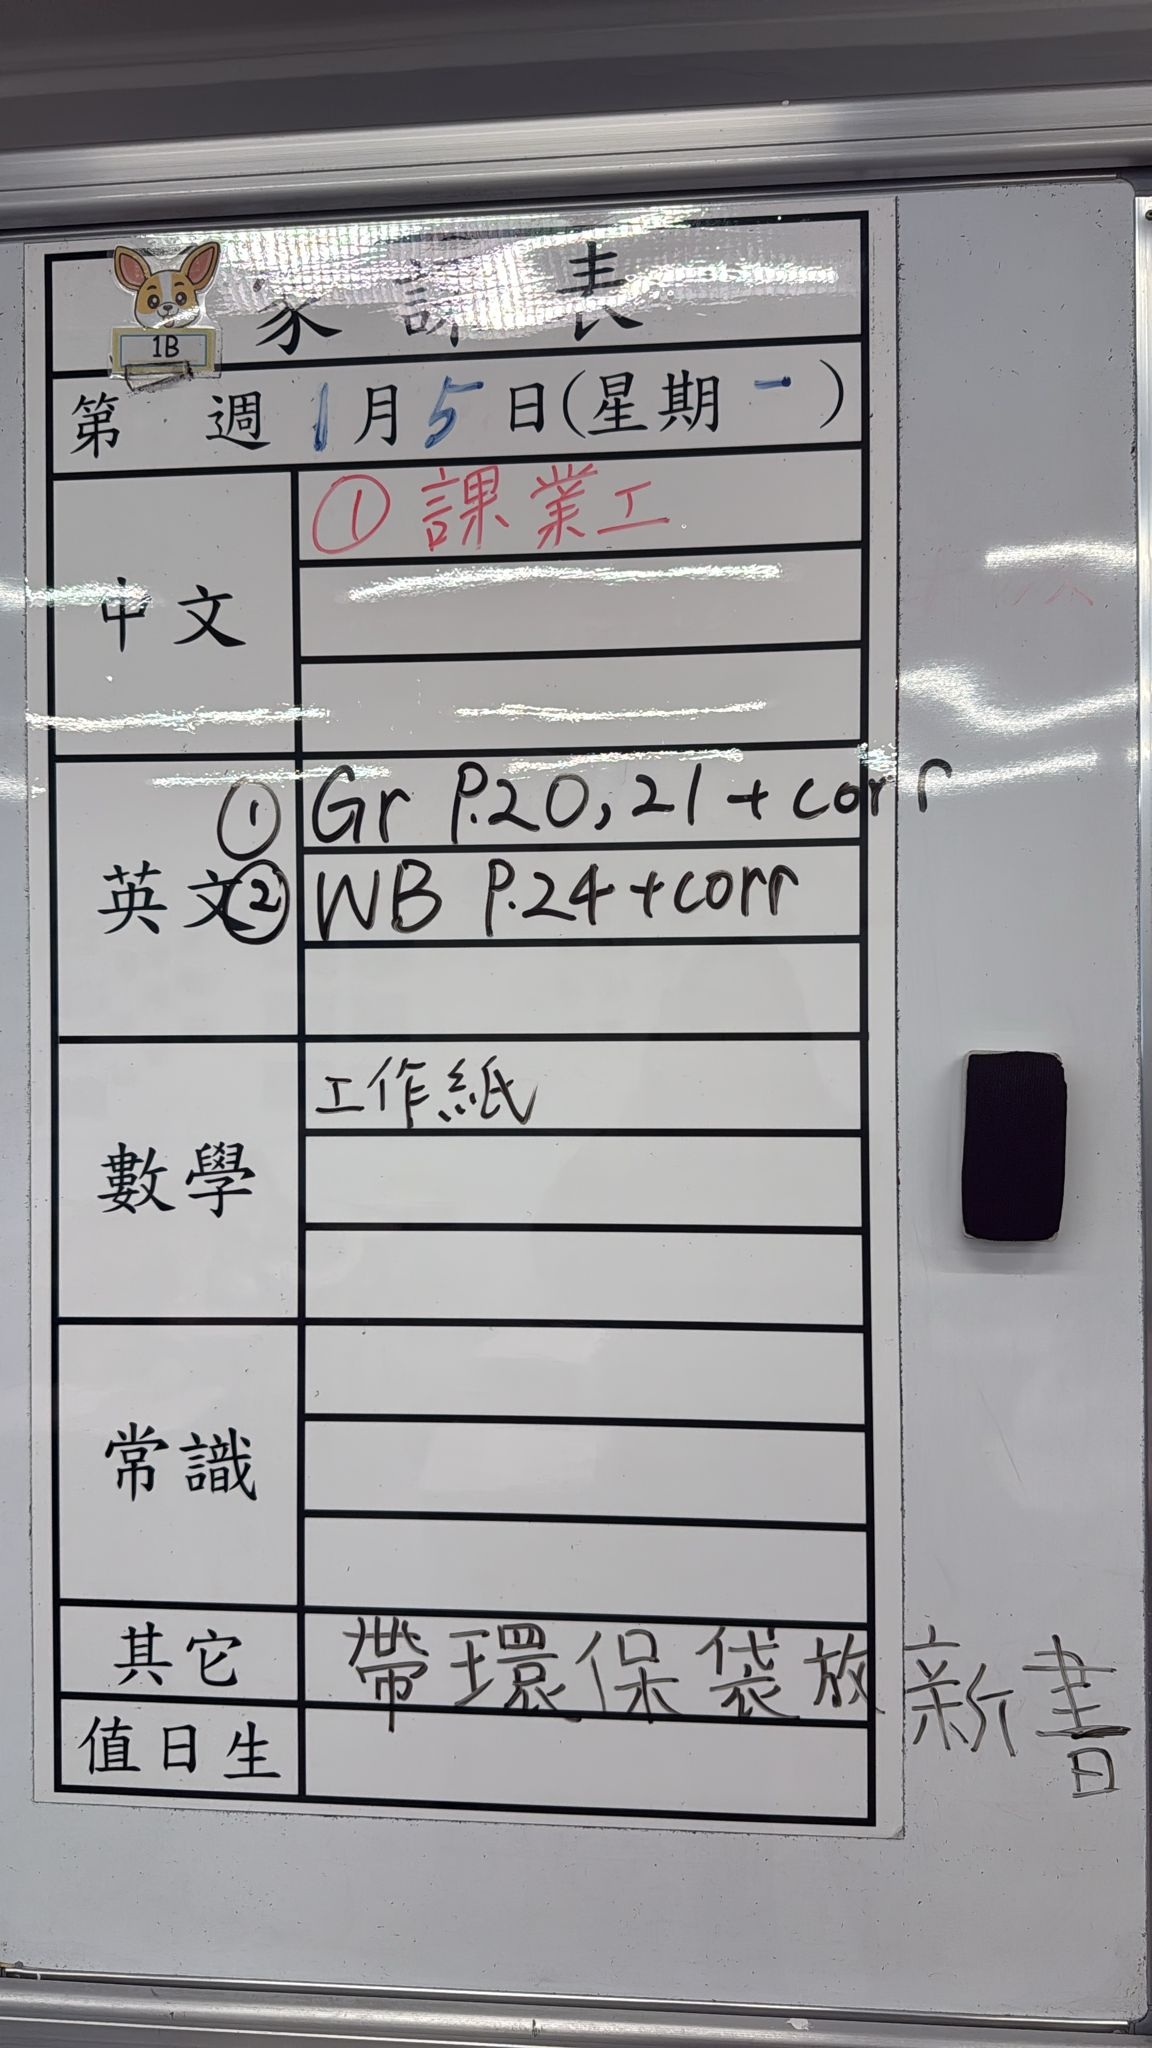 家課表
1B
第 週 1月5日(星期一)
中文
① 課業工
英文
① Gr P.20, 21 + corr
② WB P.24 + corr
數學
工作紙
常識
其它
帶環保袋放新書
值日生